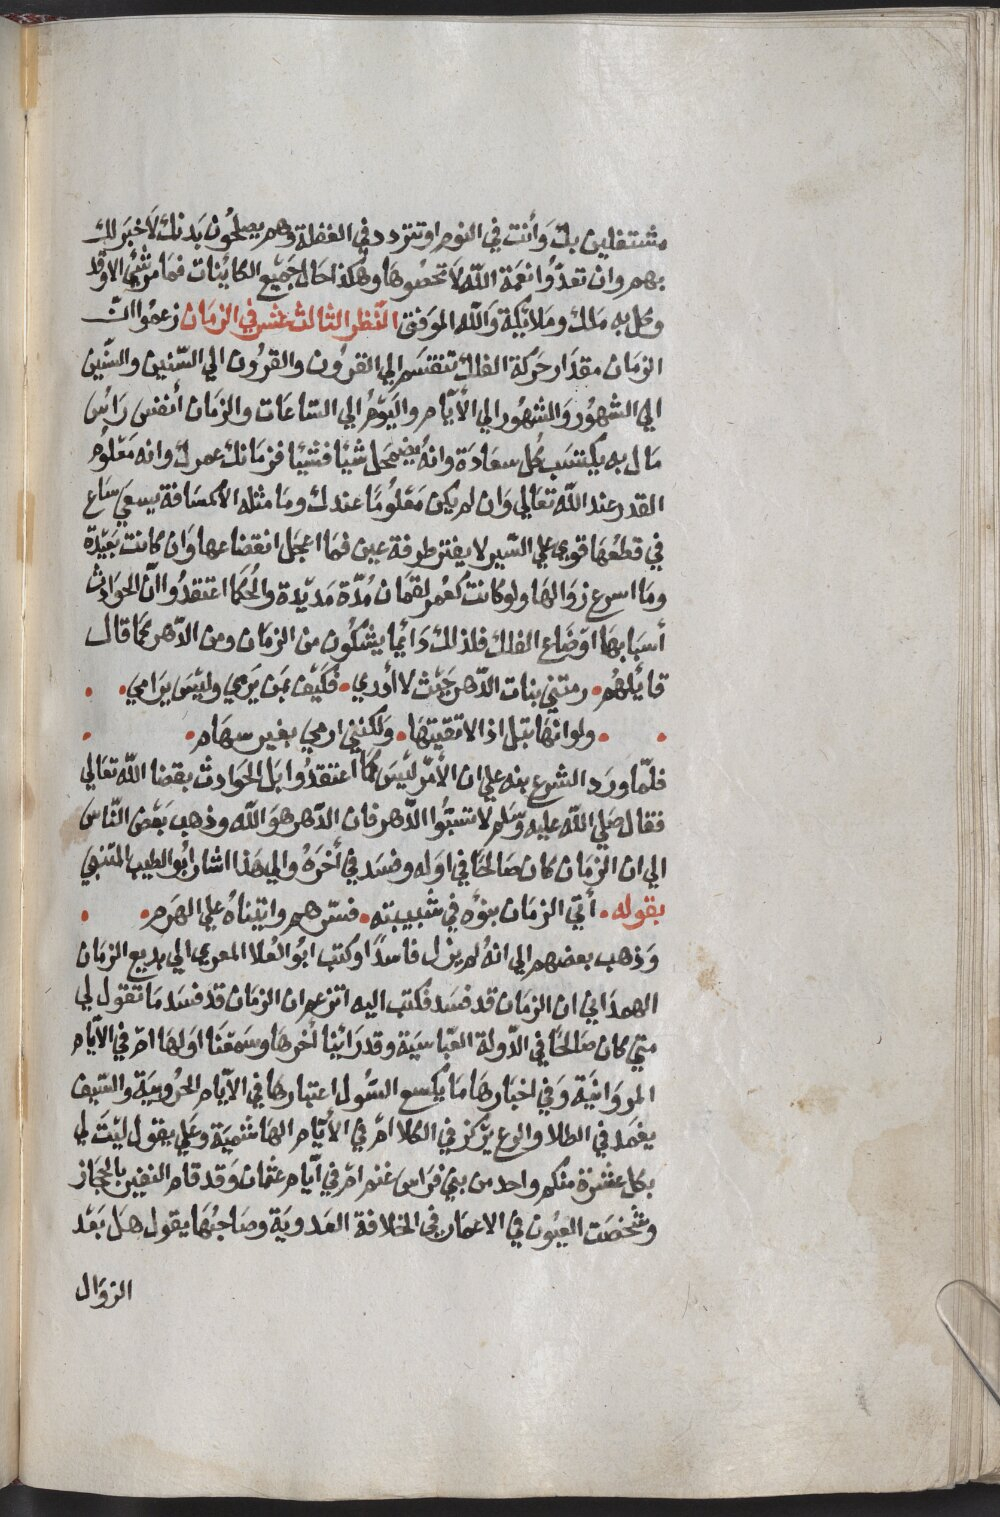 مشتغلين بك وَأنت في النوم اوتتردد في الغفلة وهم يصلحُون بَدنك لَاخبَر لك
بهم وان تعدّوُا نعَمَة الله لَا تحصُوهَا وهٰكذا حَال جَميْع الكايُنات فمَا من شئ الا وقد
وكل به مَلك وملايَكة وَالله الموَفق النّظر الثالث عشر في الزمَان زعمُوا انّ
الزمَان مقدَار حَركة الفلك تنقسَم الي القرُون والقرُون الي السّنين والسّنين
الي الشهوُر وَالشهوُر الي الأيّام واليَوْمُ الي السّاعَات والزمَان أنفس رَأسُ
مَال به يكتسَب كُل سعَادَة وانهُ يضمحَل شيْا فشيْا فزمَانك عمرك وانه مَعْلوُم
القدر عند الله تعَالي وَان لم يكن مَعْلوُمًا عندك ومَا مثله الا كمسَافة يسعَي سَاع
في قطعُهَا قوي علي السّير لا يفتر طرفة عين فمَا اعجَل انقضاعها وَان كانت بَعيْدة
ومَا اسرع زوَالهَا ولوكانت كعُمر لقمَان مُدّة مَديْدة والحُكمَا اعتقدُوا انّ الحوَادث
أسبَابهَا اوَضَاع الفلك فلذلك دَايمًا يشكُون من الزمَان ومن الدّهر كمَا قال
قايْلهُم • رمتني بنات الدّهر حَيْث لا أدري • فكَيْف بمَن يَرمي وليْسَ يرَامي •
• ولو انهَا بنبل اذا لاتقيتهَا • وَلكنني ارمي بغير سهَام •
فلمّا وَرَد الشرع بنه علي ان الأمْر ليْسَ كمَا اعتقدُوا بَل الحَوادث بقضا الله تعَالي
فقال صَلي الله عليه وَسَلم لا تسبّوُا الدّهر فان الدّهر هوَ الله وذهب بَعْض النّاس
الي ان الزمَان كان صَالحَا في اوَله وفسَد في أخرَهُ والي هَذا اشار ابُوا الطيب المتنبي
بقوله • أتَي الزمَان بنوُه في شبيبته • فسَرّهم واتيْناهُ علي الهَرم •
وَذهب بعضهم الي انهُ لم يزل فاسدًا وكتب ابُوا العُلا المعري الي بديع الزمَان
الهمدَاني ان الزمَان قد فسَد فكتب اليه اتزعم ان الزمَان قد فسَد مَا تقول لي
متي كان صَالحًا في الدّولة العَبّاسيَة وقد رَأيْنا أخرهَا وسَمعْنَا اوَلهَا امْ في الأيّام
المروَانيَة وَفي اخبَارهَا مَا يكسع السُّول اعتبارها في الأيّام الحرُوبيَة والسّيف
يغمَد في الطلا والرمح يرْكز في الكلا امْ في الأيّام الهَاشميَة وعَلي يقول ليْت لي
بكل عشرَة منكم واحد من بني فرَاس غنم امْ في أيّام عثمَان وَقد قام النفير بالحجَاز
وشخصَت العيُون في الاعجَاز في الخلافة العَدويَة وصَاحبُهَا يقول هَل بَعْد
الزوَال